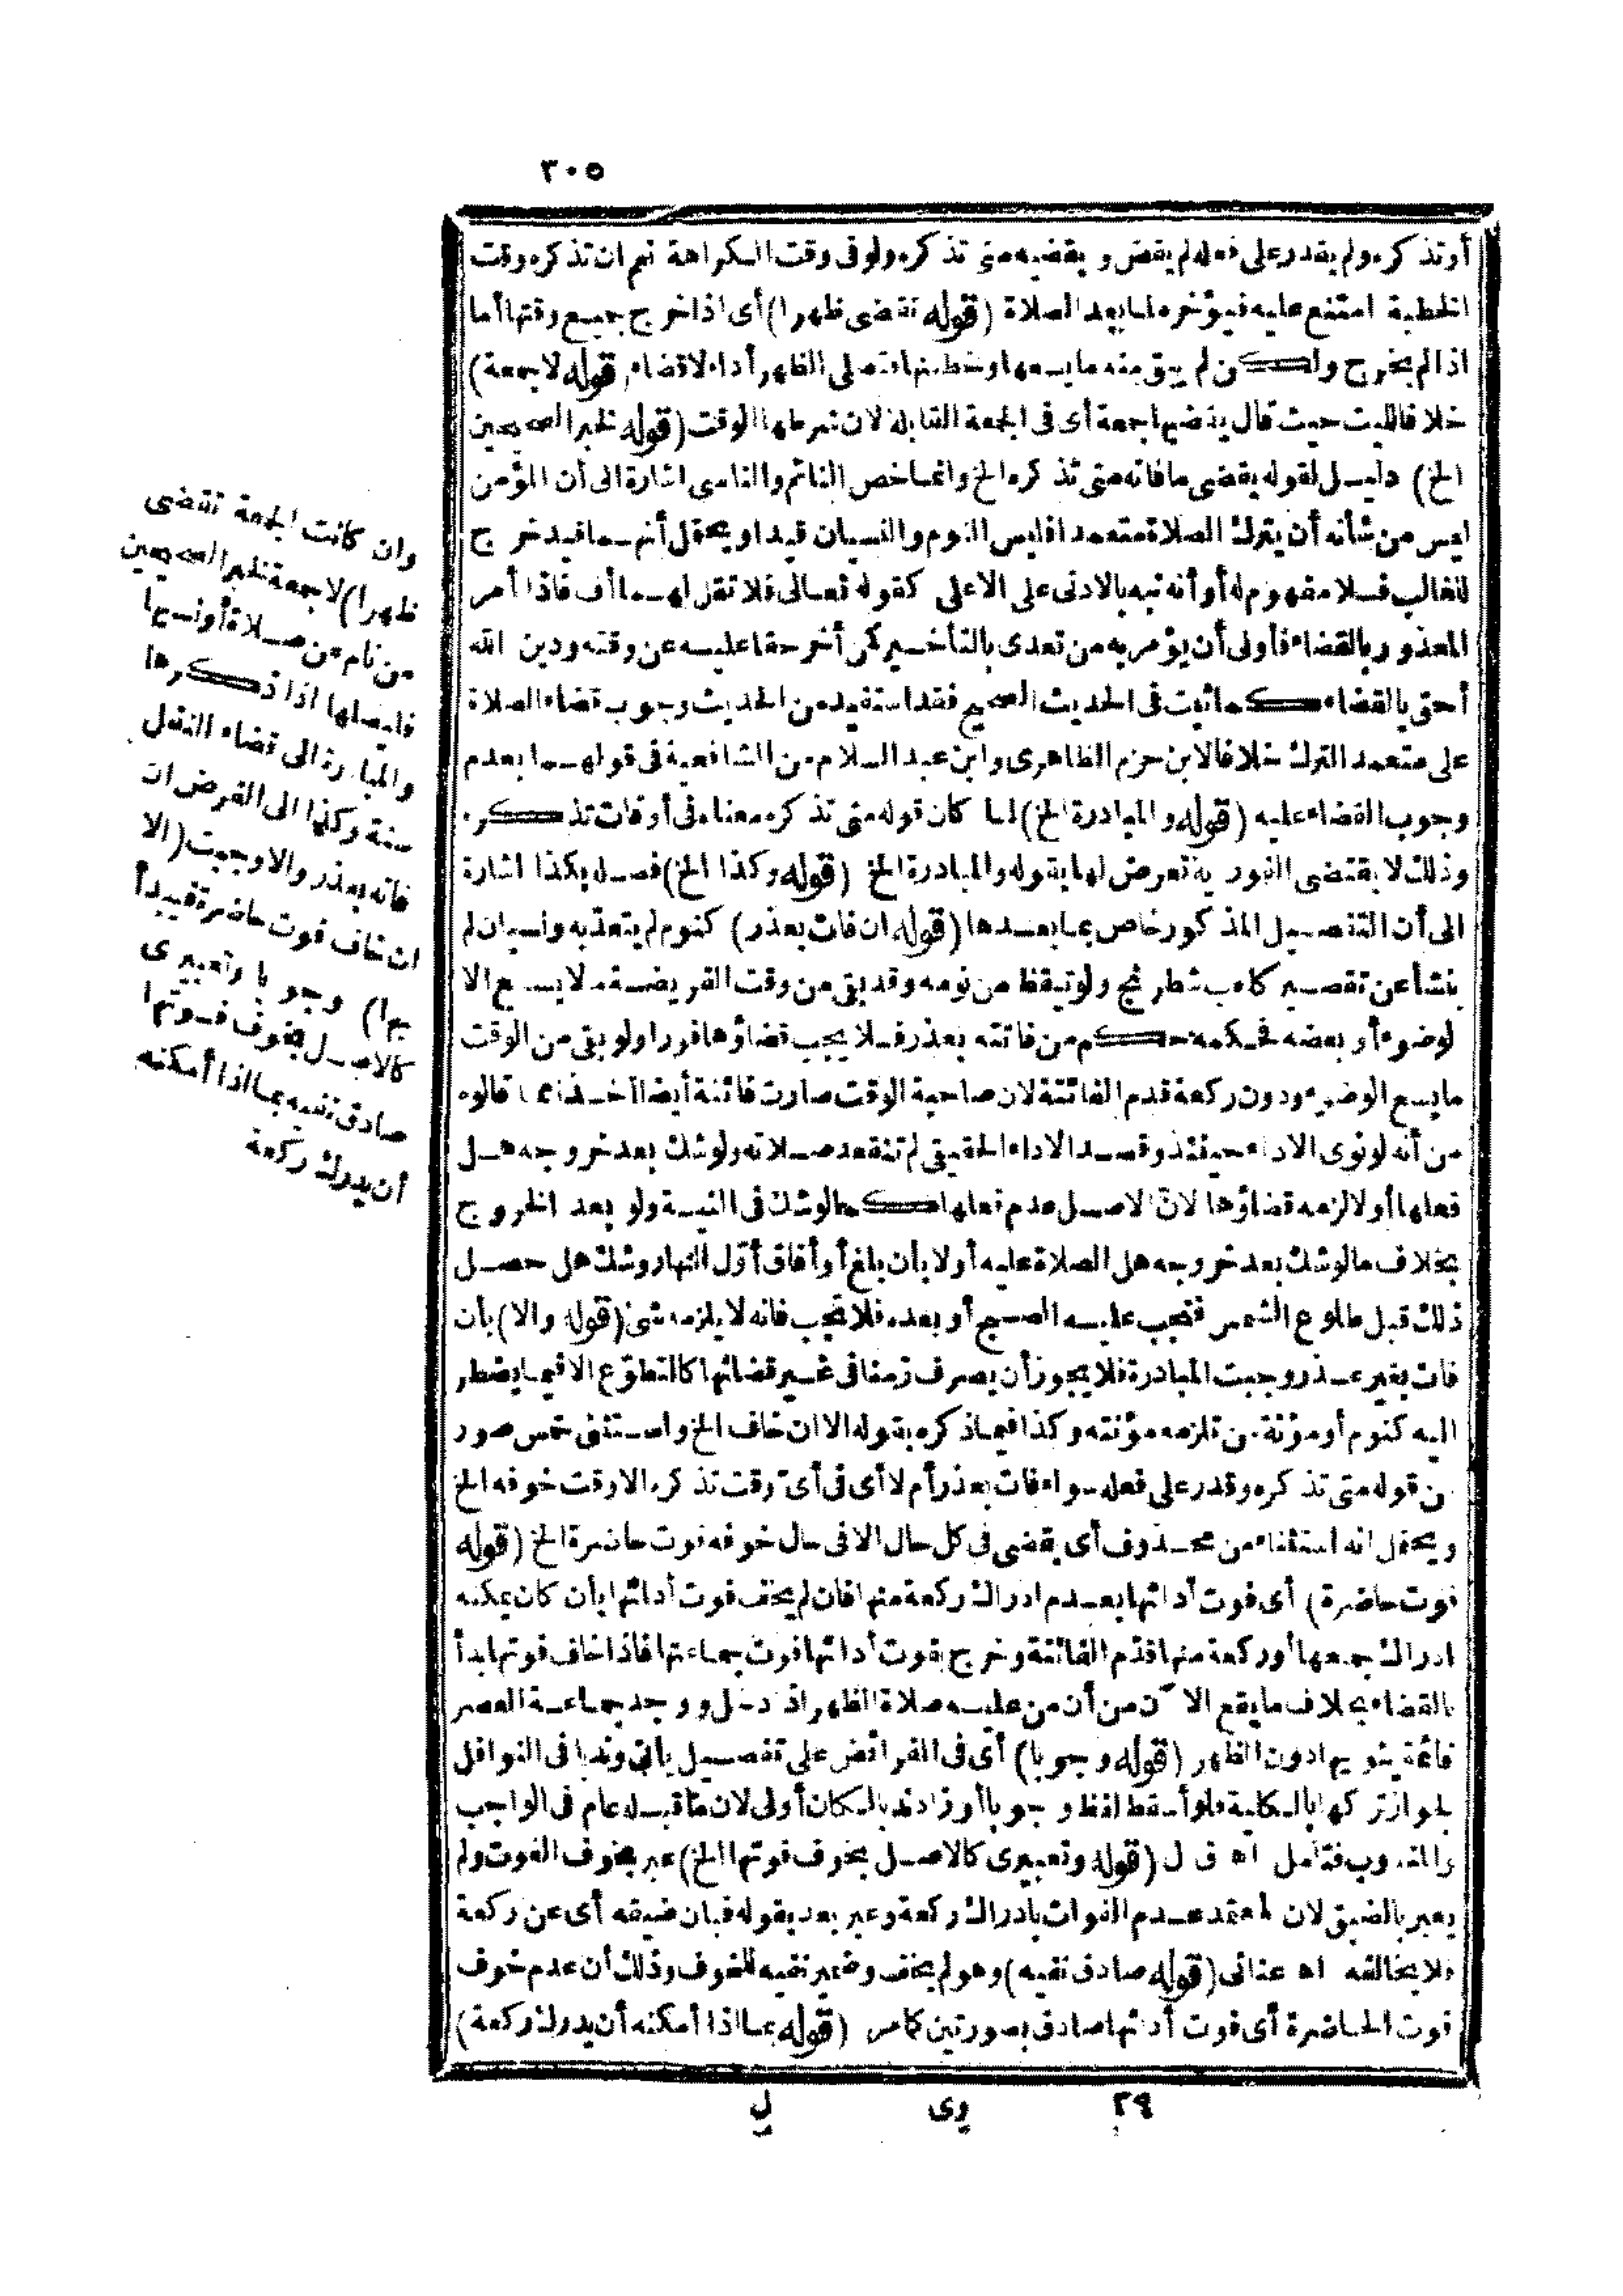 ٣٠٥
أو تذكره ولم يقدر على فعله لم يقض ويقضيه متى تذكره ولو فى وقت الكراهة نعم ان تذكره وقت
الخطبة امتنع عليه فيؤخره لما بعد الصلاة (قوله تقضى ظهرا) أى اذا خرج جميع وقتها أما
اذا لم يخرج ولكن لم يبق منه ما يسعها وخطبتها فتصلى الظهر أداء لا قضاء (قوله لا جمعة)
خلافا لليث حيث قال يقضيها جمعة أى فى الجمعة القابلة لان شرطها الوقت (قوله لخبر الصحيحين
الخ) دليل لقوله يقضى ما فاته متى تذكره الخ وانما خص النائم والناسى اشارة الى أن المؤمن
ليس من شأنه أن يترك الصلاة متعمدا فليس النوم والنسيان قيدا ويحتمل أنهما قيد خرج
للغالب فلا مفهوم له أو أنه نبه بالادنى على الاعلى كقوله تعالى فلا تقل لهما أف فاذا أمر
المعذور بالقضاء فأولى أن يؤمر به من تعدى بالتأخير كمن أخر حقا عليه عن وقته ودين الله
أحق بالقضاء كما ثبت فى الحديث الصحيح فقد استفيد من الحديث وجوب قضاء الصلاة
على متعمد الترك خلافا لابن حزم الظاهرى وابن عبد السلام من الشافعية فى قولهما بعدم
وجوب القضاء عليه (قوله والمبادرة الخ) لما كان قوله متى تذكره معناه فى أوقات تذكره
وذلك لا يقتضى الفورية تعرض لها بقوله والمبادرة الخ (قوله وكذا الخ) فصله بكذا اشارة
الى أن التفصيل المذكور خاص بما بعدها (قوله ان فات بعذر) كنوم لم يتعد به ونسيان لم
ينشأ عن تقصير كلعب شطرنج ولو تيقظ من نومه وقد بقى من وقت الفريضة ما لا يسع الا
لوضوء أو بعضه فحكمه حكم من فاتته بعذر فلا يجب قضاؤها فورا ولو بقى من الوقت
ما يسع الوضوء ودون ركعة قدم الفائتة لان صاحبة الوقت صارت فائتة أيضا أخذا مما قالوه
من أنه لو نوى الاداء حينئذ وقصد الاداء الحقيقى لم تنعقد صلاته ولو شك بعد خروجه هل
فعلها أولا لزمه قضاؤها لان الاصل عدم فعلها كما لو شك فى النية ولو بعد الخروج
بخلاف ما لو شك بعد خروجه هل الصلاة عليه أولا بأن بلغ أو أفاق أول النهار وشك هل حصل
ذلك قبل طلوع الشمس فتجب عليه الصبح أو بعده فلا تجب فانه لا يلزمه شئ (قوله والا) بأن
فات بغير عذر وجبت المبادرة فلا يجوز أن يصرف زمنا فى غير قضائها كالتطوع الا فيما يضطر
اليه كنوم أو مؤنة من تلزمه مؤنته وكذا فيما ذكره بقوله الا ان خاف الخ واستثنى خمس صور
من قوله متى تذكره وقدر على فعله سواء فات بعذر أم لا أى فى أى وقت تذكره الا وقت خوفه الخ
ويحتمل انه استثناء من محذوف أى يقضى فى كل حال الا فى حال خوفه فوت حاضرة الخ (قوله
فوت حاضرة) أى فوت أدائها بعدم ادراك ركعة منها فان لم يخف فوت أدائها بأن كان يمكنه
ادراك جميعها أو ركعة منها قدم الفائتة وخرج بفوت أدائها فوت جماعتها فاذا خاف فوتها بدأ
بالقضاء بخلاف ما يقع الآن من أن من عليه صلاة الظهر اذا دخل ووجد جماعة العصر
قائمة ينويها دون الظهر (قوله وجوبا) أى فى الفرائض على تفصيل يأتى وندبا فى النوافل
لجواز تركها بالكلية فلو أسقط لفظ وجوبا أو زاد ندبا لكان أولى لان ما قبله عام فى الواجب
والمندوب فتأمل اه ق ل (قوله وتعبيرى كالاصل بخوف فوتها الخ) عبر بخوف الفوت ولم
يعبر بالضيق لان المعتمد عدم الفوات بادراك ركعة وعبر بعد بقوله فبان ضيقه أى عن ركعة
فلا يخالفه اه عنانى (قوله صادق نفيه) وهو لم يخف وضمير نفيه للخوف وذلك أن عدم خوف
فوت الحاضرة أى فوت أدائها صادق بصورتين كما مر (قوله بما اذا أمكنه أن يدرك ركعة)
وان كانت الجمعة تقضى
ظهرا) لا جمعة لخبر الصحيحين
من نام عن صلاة أو نسيها
فليصلها اذا ذكرها
والمبادرة الى قضاء النفل
سنة وكذا الى الفرض ان
فاته بعذر والا وجبت (الا
ان خاف فوت حاضرة فيبدأ
بها) وجوبا وتعبيرى
كالاصل بخوف فوتها
صادق نفيه بما اذا أمكنه
أن يدرك ركعة
٣٩ وى ل